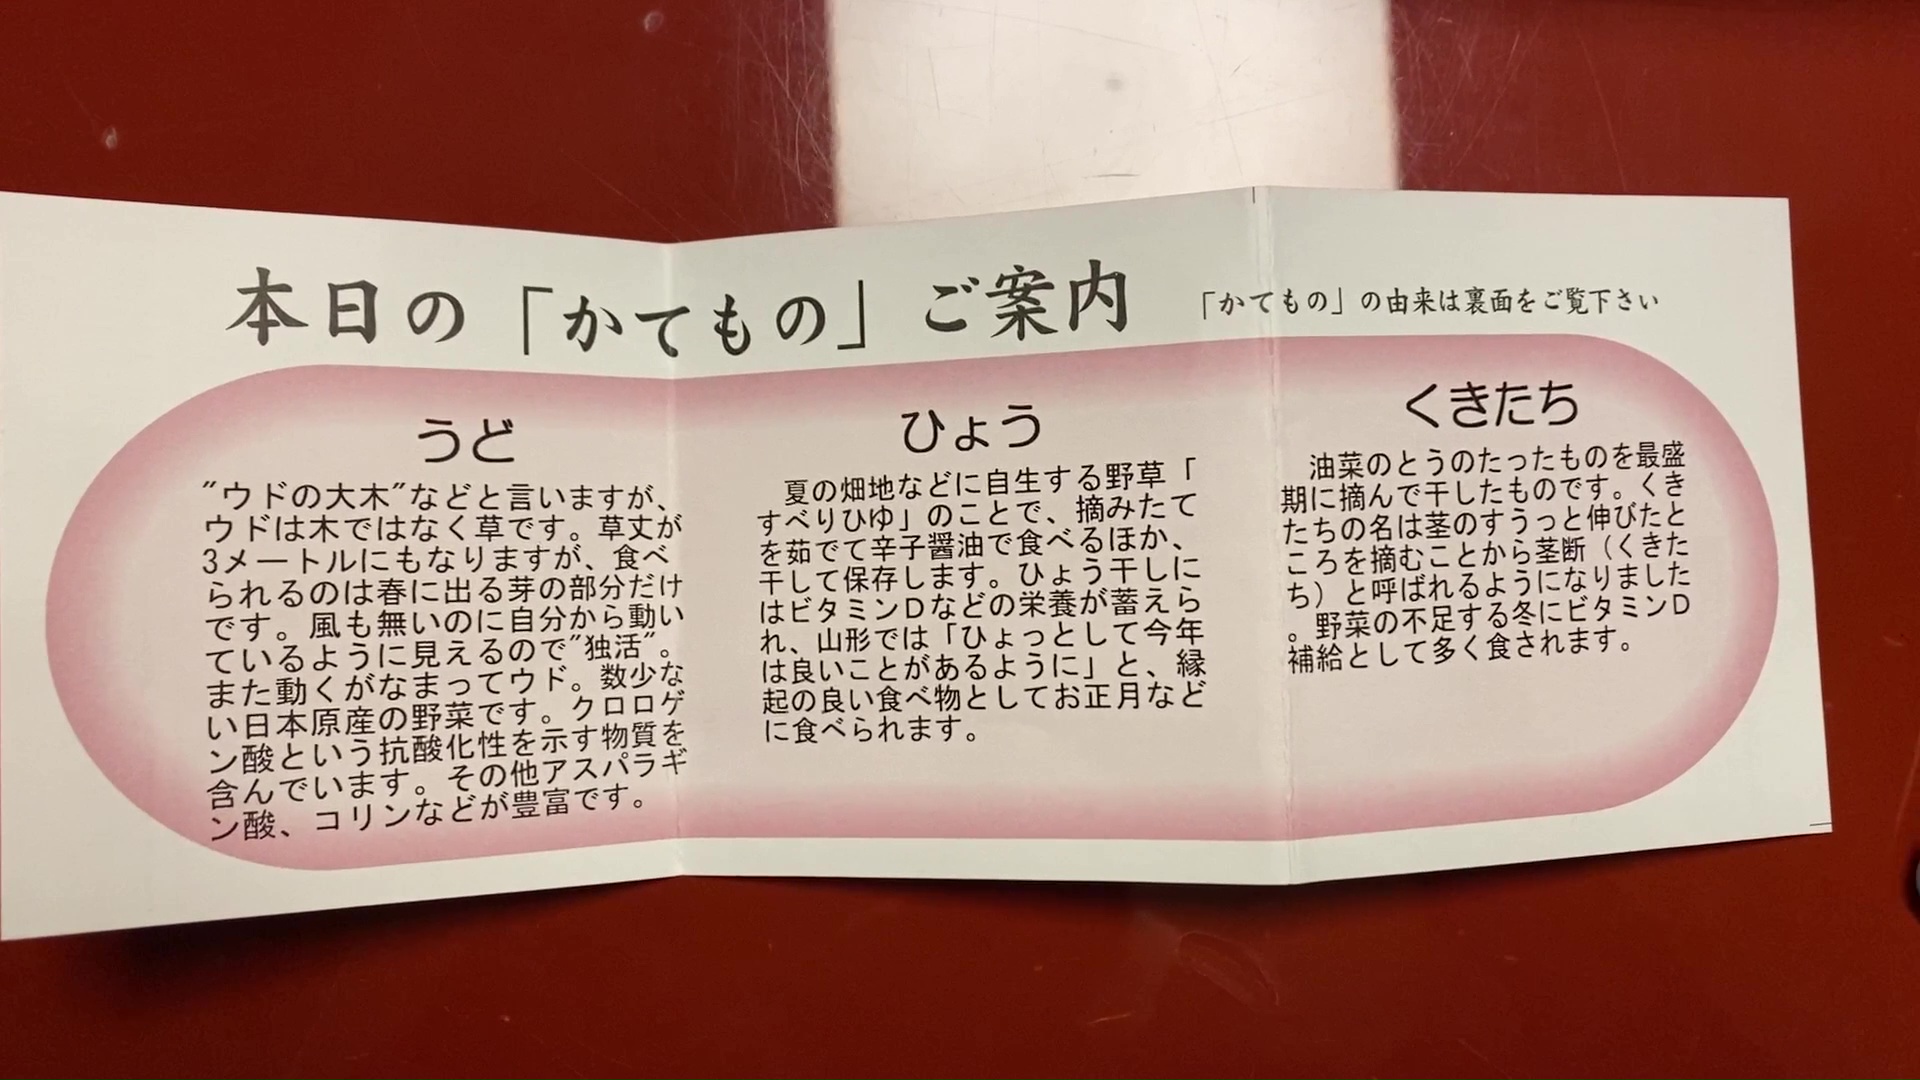 本日の「かてもの」ご案内
「かてもの」の由来は裏面をご覧下さい
うど
"ウドの大木"などと言いますが、
ウドは木ではなく草です。草丈が
3メートルにもなりますが、食べ
られるのは春に出る芽の部分だけ
です。風も無いのに自分から動い
ているように見えるので"独活"。
また動くがなまってウド。数少な
い日本原産の野菜です。クロロゲ
ン酸という抗酸化性を示す物質を
含んでいます。その他アスパラギ
ン酸、コリンなどが豊富です。
ひょう
夏の畑地などに自生する野草「
すべりひゆ」のことで、摘みたて
を茹でて辛子醤油で食べるほか、
干して保存します。ひょう干しに
はビタミンDなどの栄養が蓄えら
れ、山形では「ひょっとして今年
は良いことがあるように」と、縁
起の良い食べ物としてお正月など
に食べられます。
くきたち
油菜のとうのたったものを最盛
期に摘んで干したものです。くき
たちの名は茎のすうっと伸びたと
ころを摘むことから茎断（くきた
ち）と呼ばれるようになりました
。野菜の不足する冬にビタミンD
補給として多く食されます。